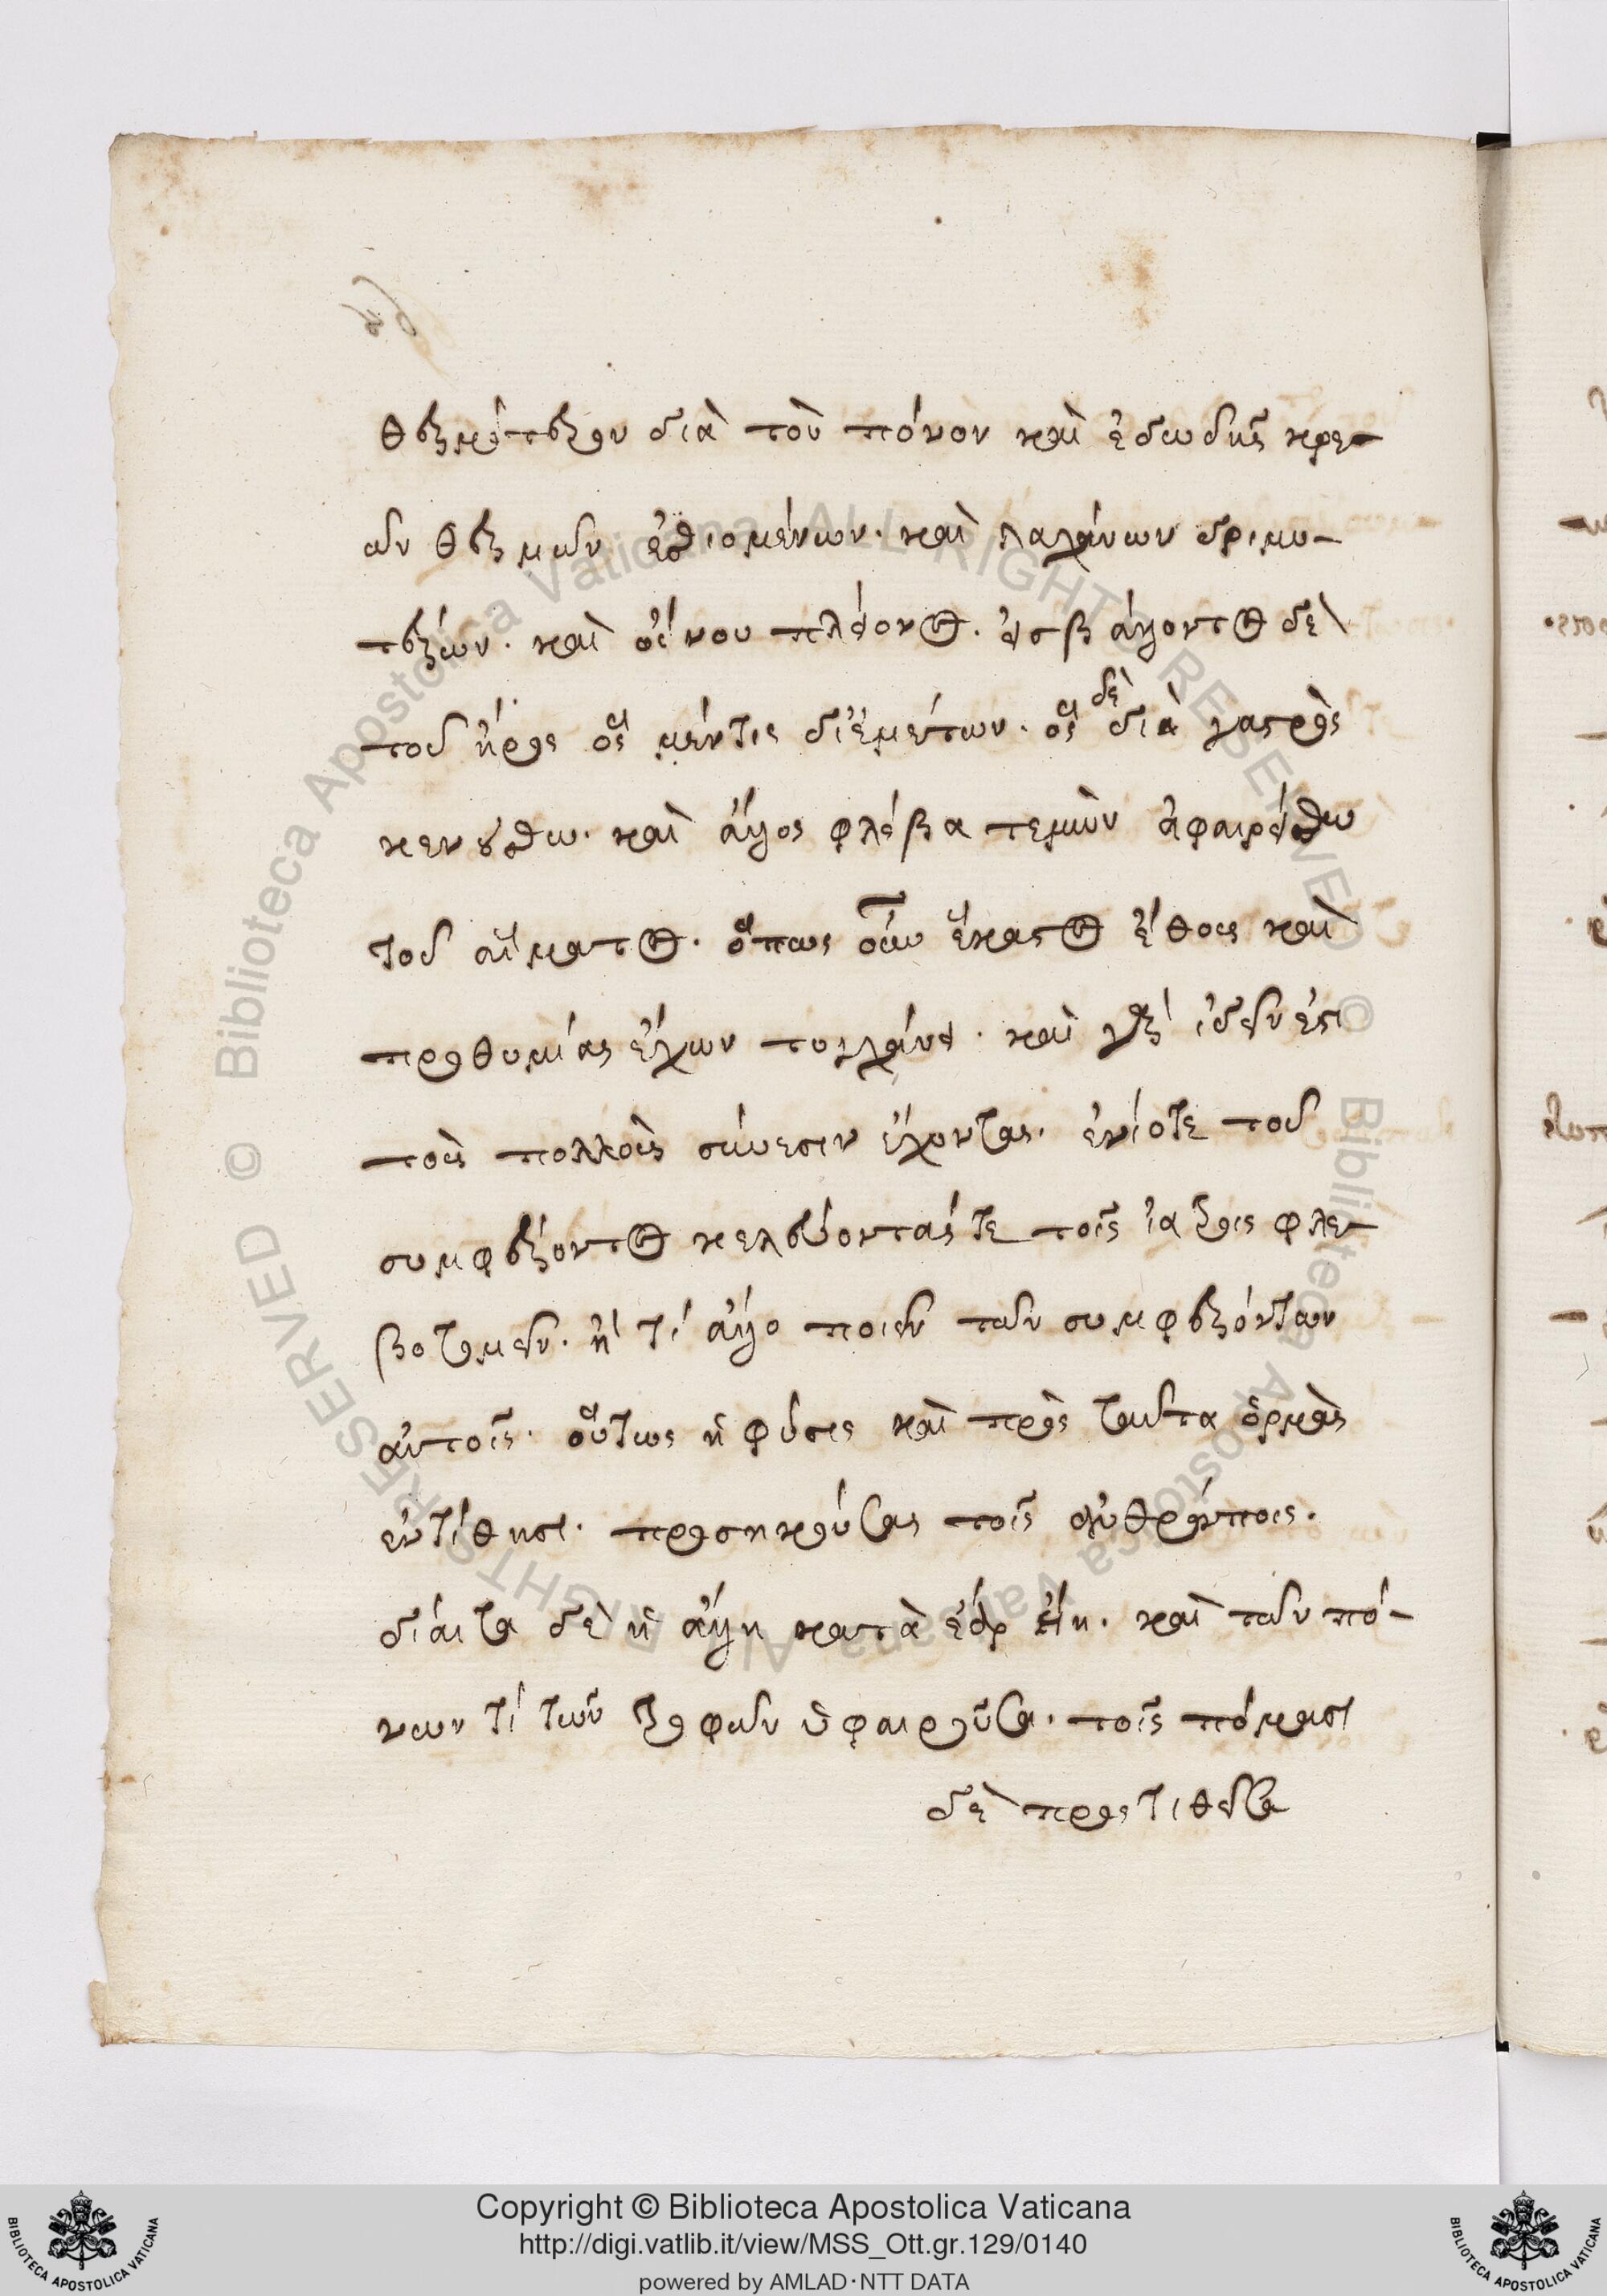 θερμότερον διὰ τὸν πόνον καὶ ἐδωδῆς κρε-
ῶν θερμῶν ἐσθιομένων· καὶ λαχάνων δριμυ-
τέρων· καὶ οἴνου πλείονος. εἰσβάλλοντος δὲ
τοῦ ἦρος ὅς μέν τις δι' ἐμέτων· ὅς δὲ διὰ γαστρὸς
κενούσθω· καὶ ἄλλος φλέβα τεμὼν ἀφαιρείσθω
τοῦ αἵματος· ὅπως οὖν ἕκαστος ἔθους καὶ
προθυμίας ἔχων τυγχάνει· καὶ γὰρ ἰδεῖν ἐστι
τοὺς πολλοὺς σύνεσιν ἔχοντας· ἐνίοτε τοῦ
συμφέροντος κελεύοντάς τε τοῖς ἰατροῖς φλε-
βοτομεῖν· ἤ τι ἄλλο ποιεῖν τῶν συμφερόντων
αὐτοῖς· οὕτως ἡ φύσις καὶ πρὸς ταῦτα ὁρμὰς
ἐντίθησι· προσηκούσας τοῖς ἀνθρώποις.
δίαιτα δὲ ἡ ἄλλη κατὰ ἔαρ εἴη· καὶ τῶν πό-
νων τι τῶν τροφῶν ὑφαιροῦσα· τοῖς πόμασι
δὲ προστιθεῖσα
Copyright © Biblioteca Apostolica Vaticana
http://digi.vatlib.it/view/MSS_Ott.gr.129/0140
powered by AMLAD·NTT DATA
BIBLIOTECA APOSTOLICA VATICANA
BIBLIOTECA APOSTOLICA VATICANA
© Biblioteca Apostolica Vaticana ALL RIGHTS RESERVED
© Biblioteca Apostolica Vaticana ALL RIGHTS RESERVED